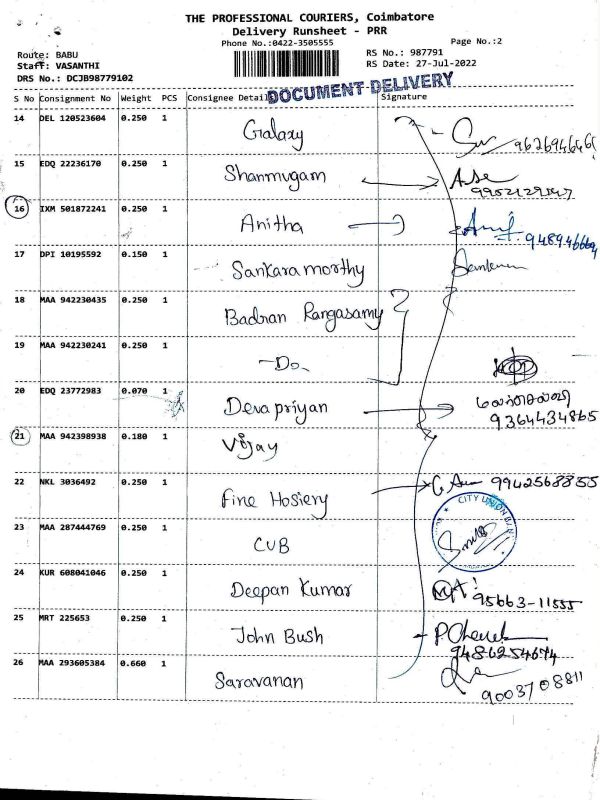 THE PROFESSIONAL COURIERS, Coimbatore
Delivery Runsheet - PRR
Phone No.:0422-3505555
Page No.:2
Route: BABU
RS No.: 987791
Staff: VASANTHI
RS Date: 27-Jul-2022
DRS No.: DCJB98779102
DOCUMENT DELIVERY
S No Consignment No Weight PCS Consignee Details Signature
14 DEL 120523604 0.250 1 Galaxy
15 EDQ 22236170 0.250 1 Shanmugam
16 IXM 501872241 0.250 1 Anitha
17 DPI 10195592 0.150 1 Sankaramorthy
18 MAA 942230435 0.250 1 Badran Rangasamy
19 MAA 942230241 0.250 1 -Do-
20 EDQ 23772983 0.070 1 Devapriyan
9364434865
21 MAA 942398938 0.180 1 Vijay
22 NKL 3036492 0.250 1 Fine Hosiery 9942568855
23 MAA 287444769 0.250 1 CUB CITY UNION
24 KUR 608041046 0.250 1 Deepan Kumar
95663-11555
25 MRT 225653 0.250 1 John Bush
9486254674
26 MAA 293605384 0.660 1 Saravanan
9003708811